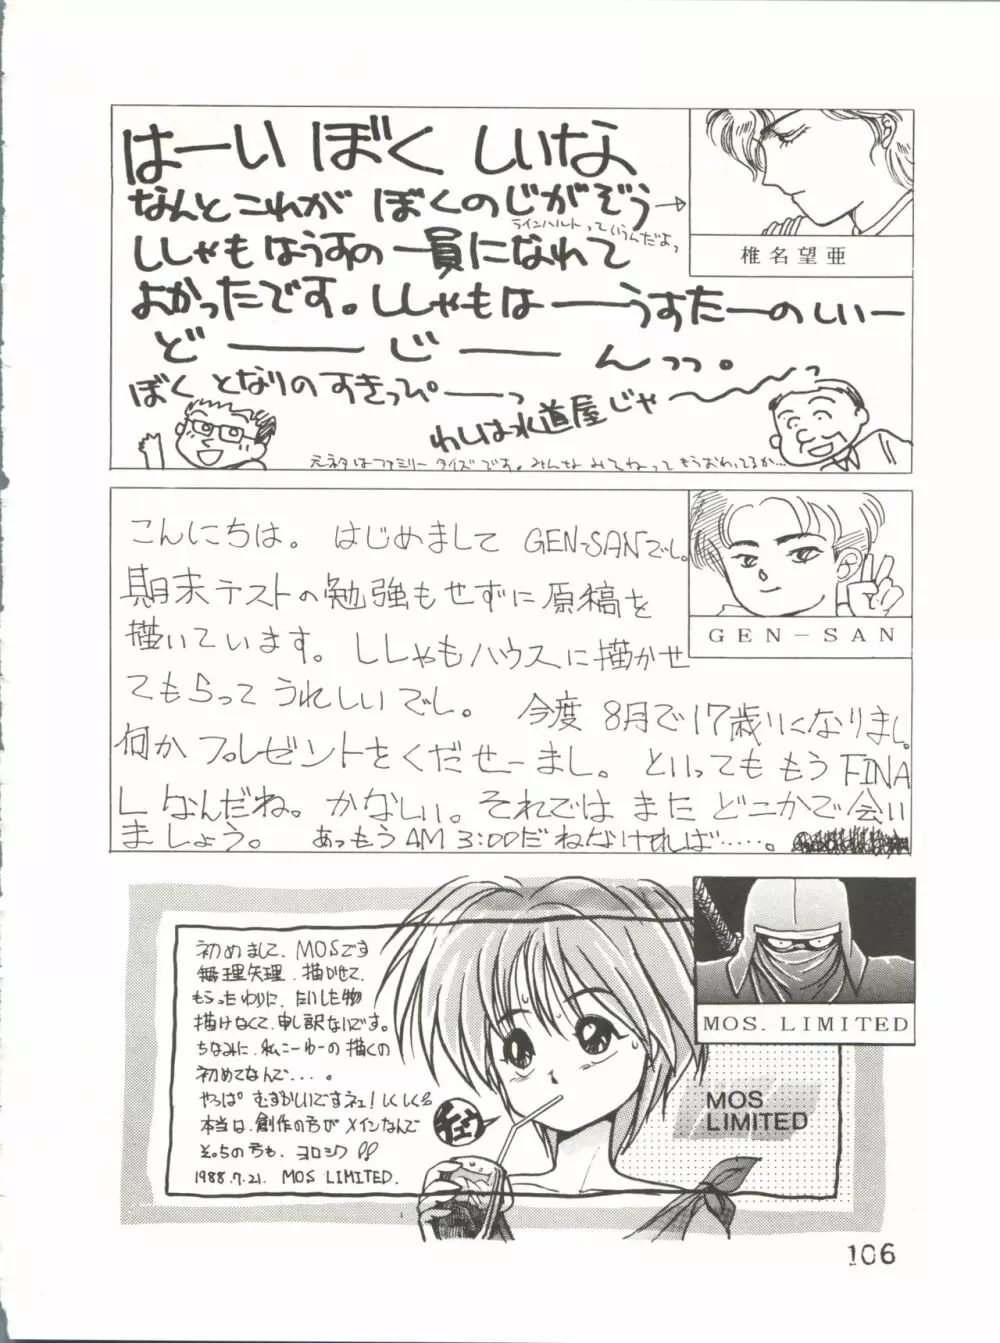 はーい ぼく しいな
なんとこれが ぼくのじがぞう→
ラインハルトっていうんだよっ
ししゃもはうすの一員になれて
よかったです。ししゃもは――うすたーのしいー
ど――じ――んっっ。
ぼく となりのすきっぴ――っ
わしは水道屋じゃ〜〜っ
元ネタはファミリータイズです。みんなみてねってもうおわってるか…
椎名望亜
こんにちは。はじめまして GEN-SANでし。
期末テストの勉強もせずに原稿を
描いています。ししゃもハウスに描かせ
てもらってうれしいでし。 今度 8月で17歳いになりまし。
何かプレゼントをくだせーまし。といってももうFINA
Lなんだね。かなしい。それではまたどこかで会い
ましょう。 あっもうAM 3:00だねなければ……。
GEN-SAN
初めまして、MOSです
無理矢理、描かせて、
もらったわりに、たいした物
描けなくて、申し訳ないです。
ちなみに、私こーゆーの描くの
初めてなんで....。
やっぱ むずかしいですネェ!しくしく
本当は、創作の方がメインなんで
そっちの方も、ヨロシク
1988.7.21. MOS LIMITED.
MOS. LIMITED
MOS
LIMITED
106